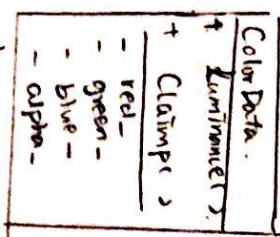 ColorData.
+ Luminance()
+ Claimp()
- red_
- green_
- blue_
- alpha_